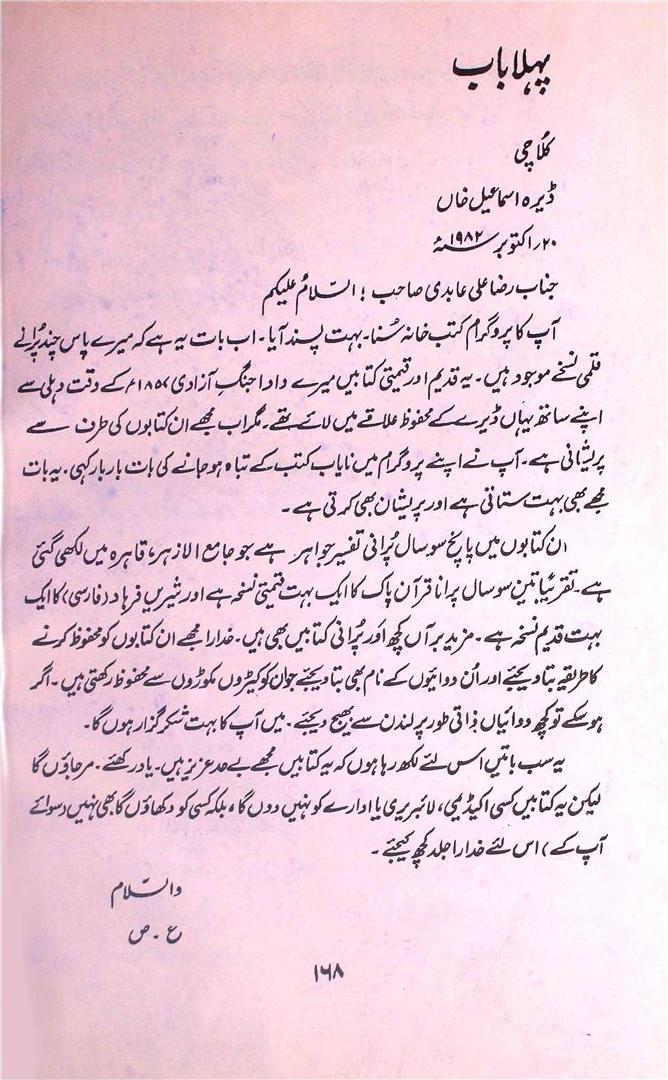 پہلا باب
کلاچی
ڈیرہ اسماعیل خاں
۲۰؍ اکتوبر ۱۹۸۲ء
جناب رضا علی عابدی صاحب ! السّلامُ علیکم
آپ کا پروگرام کتب خانہ سُنا۔ بہت پسند آیا۔ اب بات یہ ہے کہ میرے پاس چند پُرانے
قلمی نسخے موجود ہیں۔ یہ قدیم اور قیمتی کتابیں میرے دادا جنگِ آزادی ۱۸۵۷ء کے وقت دہلی سے
اپنے ساتھ یہاں ڈیرے کے محفوظ علاقے میں لائے تھے۔ مگر اب مجھے ان کتابوں کی طرف سے
پریشانی ہے۔ آپ نے اپنے پروگرام میں نایاب کتب کے تباہ ہو جانے کی بات بار بار کہی۔ یہ بات
مجھے بھی بہت ستاتی ہے اور پریشان بھی کرتی ہے۔
ان کتابوں میں پانچ سو سال پُرانی تفسیر جواہر ہے جو جامع الازہر، قاہرہ میں لکھی گئی
ہے۔ تقریباً تین سو سال پرانا قرآن پاک کا ایک بہت قیمتی نسخہ ہے اور شیریں فرہاد (فارسی) کا ایک
بہت قدیم نسخہ ہے۔ مزید برآں کچھ اور پُرانی کتابیں بھی ہیں۔ خدارا مجھے ان کتابوں کو محفوظ کرنے
کا طریقہ بتا دیجئے اور اُن دوائیوں کے نام بھی بتا دیجئے جو ان کو کیڑوں مکوڑوں سے محفوظ رکھتی ہیں۔ اگر
ہو سکے تو کچھ دوائیاں ذاتی طور پر لندن سے بھیج دیجئے۔ میں آپ کا بہت شکر گزار ہوں گا۔
یہ سب باتیں اس لئے لکھ رہا ہوں کہ یہ کتابیں مجھے بے حد عزیز ہیں۔ یاد رکھئے۔ مر جاؤں گا
لیکن یہ کتابیں کسی اکیڈیمی، لائبریری یا ادارے کو نہیں دوں گا، بلکہ کسی کو دکھاؤں گا بھی نہیں (سوائے
آپ کے) اس لئے خدارا جلد کچھ کیجئے۔
والسّلام
ع ۔ ص
۱۶۸